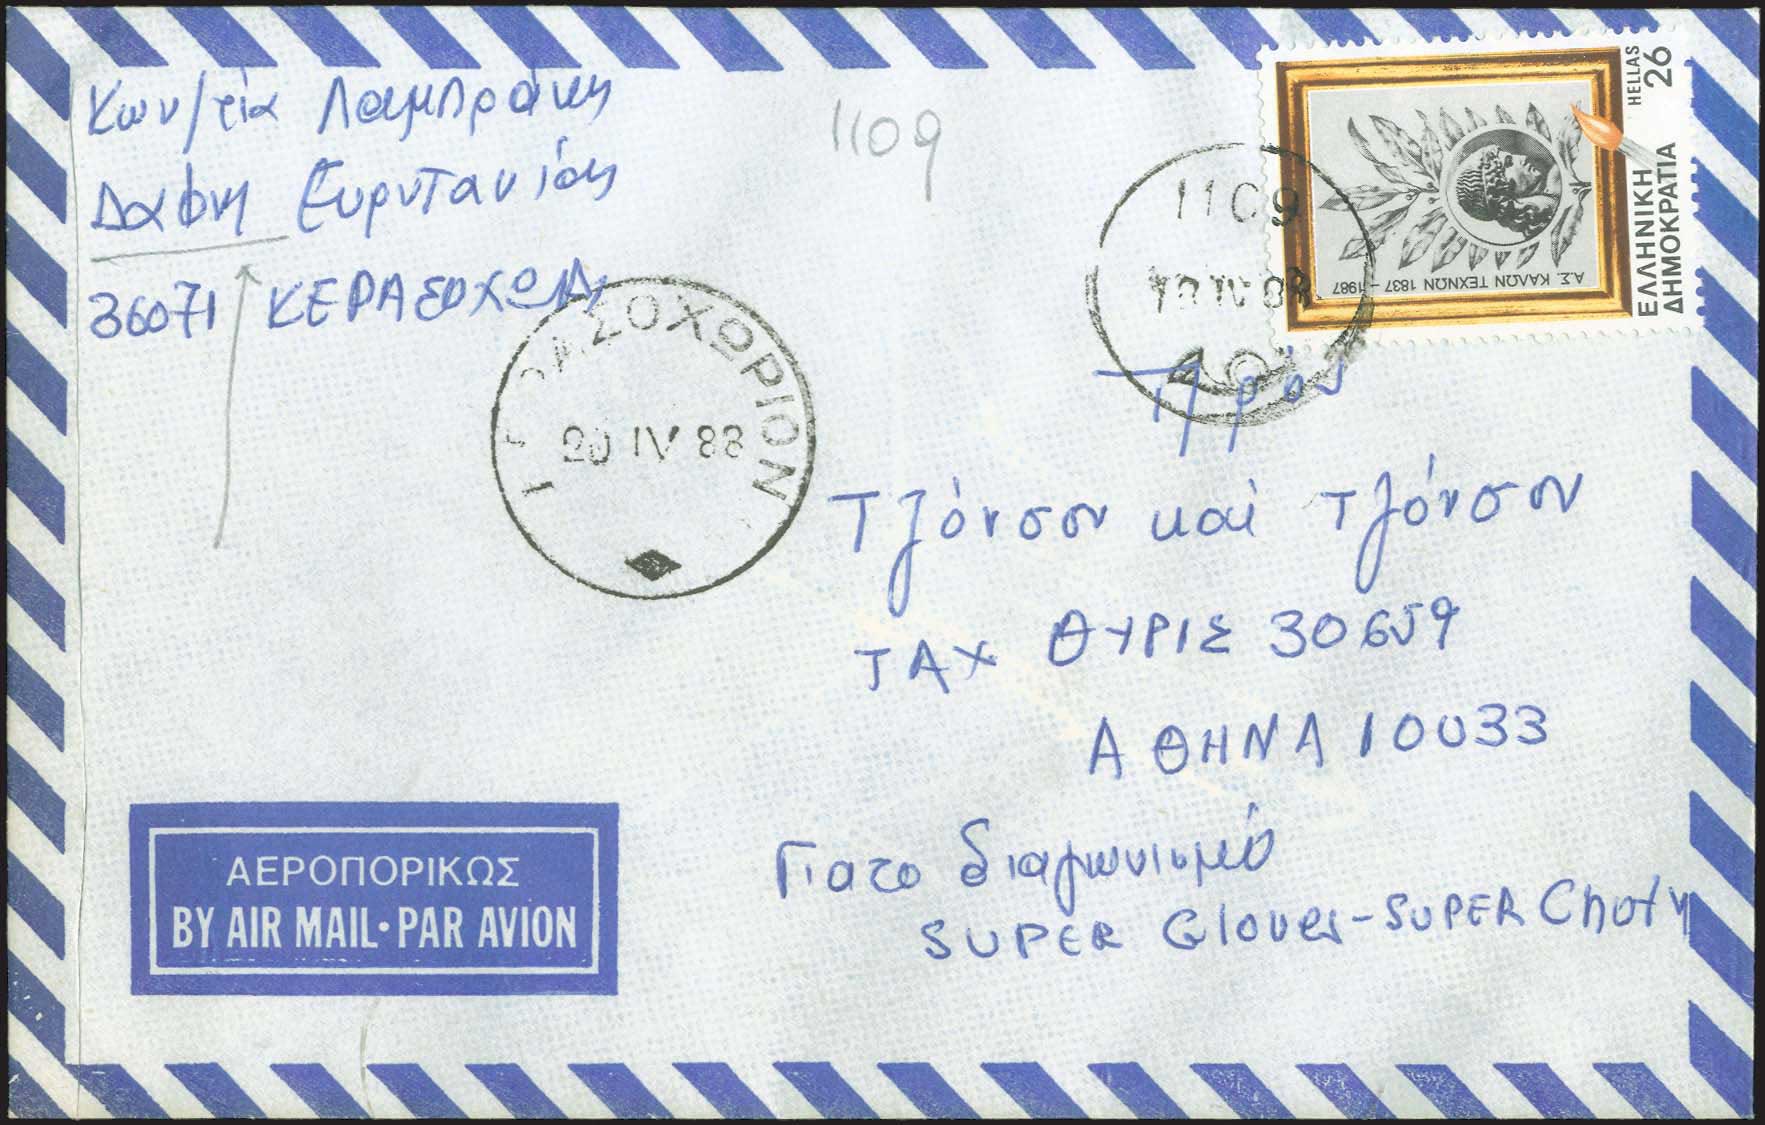 Κων/τία Λαμπράκη
Δάφνη Ευρυτανίας
36071 ΚΕΡΑΣΟΧΩΡΙ
1109
1109
IV 88
ΣΟΧΩΡΙΟΝ
20 IV 88
HELLAS 26
ΕΛΛΗΝΙΚΗ
ΔΗΜΟΚΡΑΤΙΑ
Α.Σ. ΚΑΛΩΝ ΤΕΧΝΩΝ 1837 - 1987
Πρός
Τζόνσον καί Τζόνσον
ΤΑΧ ΘΥΡΙΣ 30659
ΑΘΗΝΑ 10033
Γιατο διαγωνισμό
SUPER Glover-SUPER
ΑΕΡΟΠΟΡΙΚΩΣ
BY AIR MAIL • PAR AVION